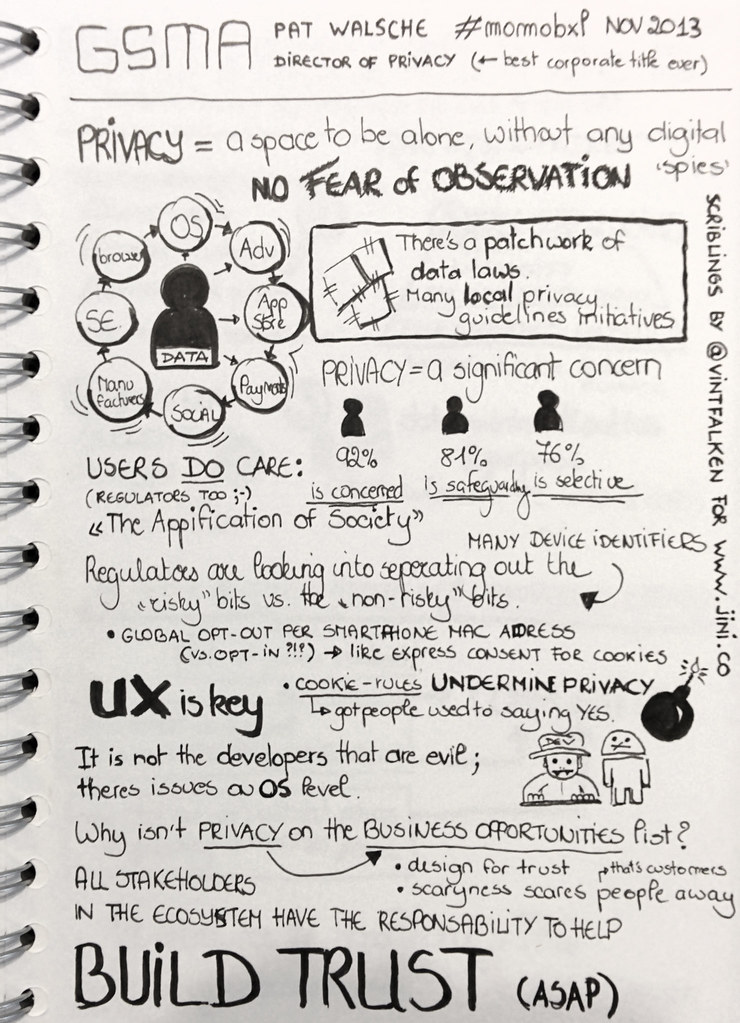 GSMA
PAT WALSCHE #momobxl NOV 2013
DIRECTOR OF PRIVACY (← best corporate title ever)
PRIVACY = a space to be alone, without any digital
'spies'
NO FEAR of OBSERVATION
OS
Adv
App
Store
Payments
SOCIAL
Manu
facturers
SE.
browser
DATA
There's a patchwork of
data laws.
Many local privacy
guidelines initiatives
PRIVACY = a significant concern
92%
81%
76%
USERS DO CARE:
(REGULATORS TOO ;-)
is concerned
is safeguardg
is selective
"The Appification of Society"
MANY DEVICE iDENTIFIERS
Regulators are looking into seperating out the
"risky" bits vs. the "non-risky" bits.
• GLOBAL OPT-OUT PER SMARTPHONE MAC ADDRESS
(VS. OPT-IN ?!?) → like EXPRESS CONSENT FOR COOKIES
UX is key
• COOKIE-RULES UNDERMINE PRIVACY
↳ got people used to saying YES.
It is not the developers that are evil;
theres issues on OS level.
DEV
Why isn't PRIVACY on the BUSINESS OPPORTUNITIES list?
• design for trust
that's customers
• scaryness scares people away
ALL STAKEHOLDERS
IN THE ECOSYSTEM HAVE THE RESPONSABILITY TO HELP
BUILD TRUST (ASAP)
SCRIBLINGS BY @VINTFALKEN FOR WWW.JINI.CO